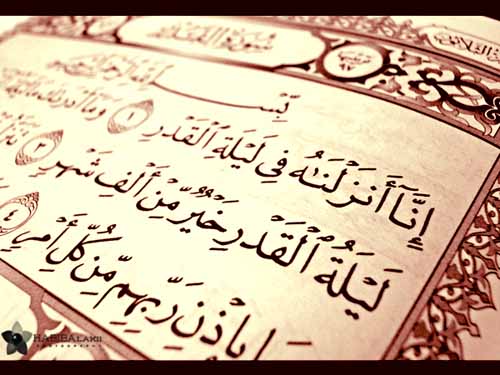 سُورَةُ القَدْرِ
بِسْمِ اللَّهِ الرَّحْمَٰنِ الرَّحِيمِ
إِنَّآ أَنزَلْنَٰهُ فِى لَيْلَةِ ٱلْقَدْرِ ١ وَمَآ أَدْرَىٰكَ
لَيْلَةُ ٱلْقَدْرِ خَيْرٌ مِّنْ أَلْفِ شَهْرٍ ٣
بِإِذْنِ رَبِّهِم مِّن كُلِّ أَمْرٍ ٤
PHOTOGRAPHY